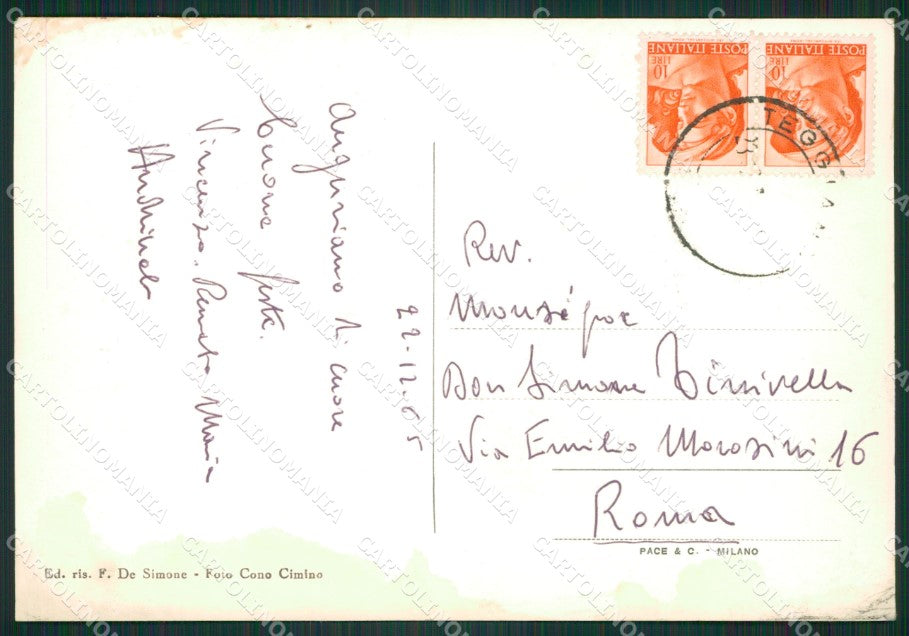 POSTE ITALIANE
LIRE
10
POSTE ITALIANE
LIRE
10
TEGGIAN
22-12-65
Auguriamo di cuore
buone feste.
Vincenzo, Renato Maria
Rev.
Don Simone
Via Emilio Morosini 16
Roma
PACE & C. - MILANO
Ed. ris. F. De Simone - Foto Cono Cimino
CARTOLINOMANIA